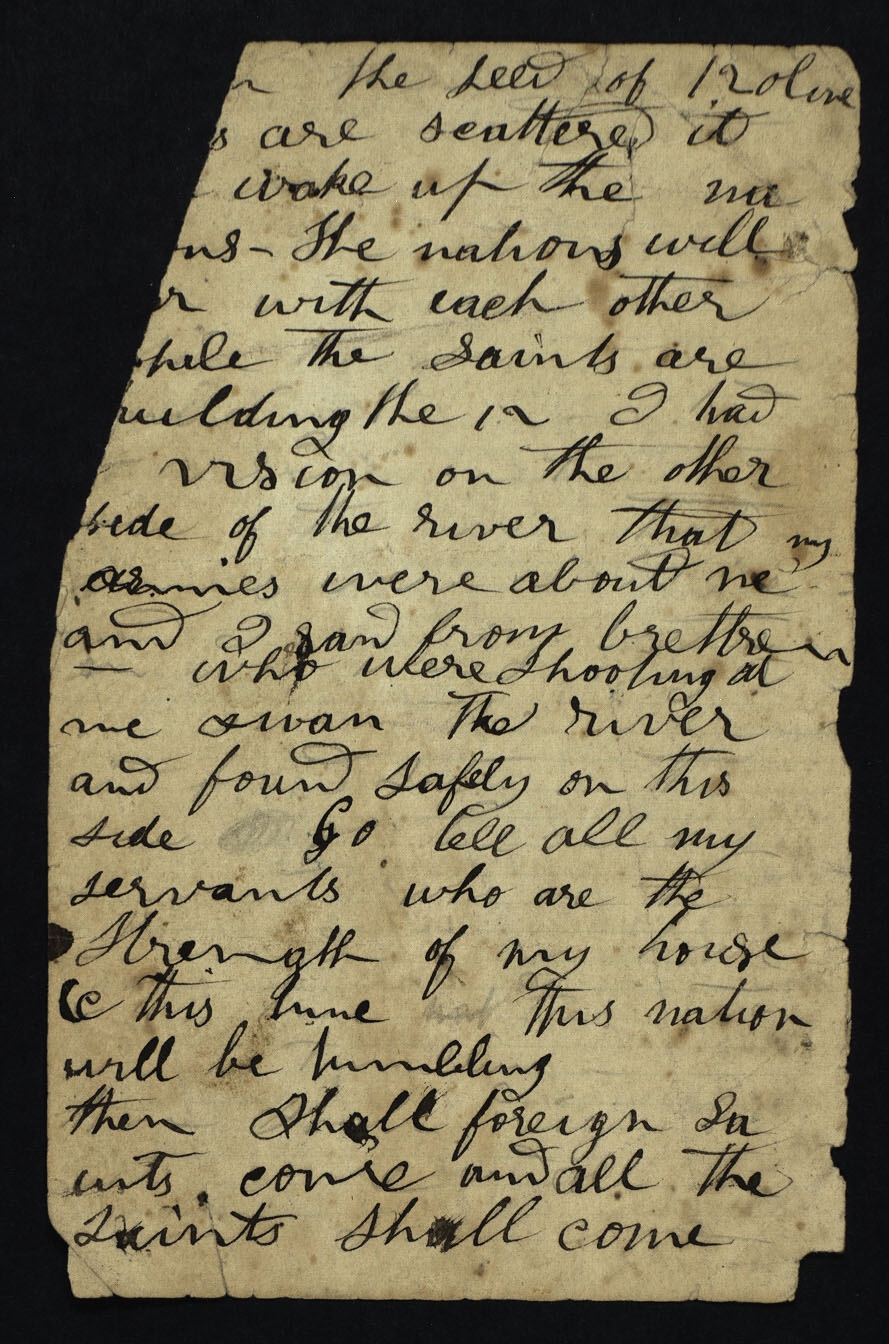 the seed of 12 olive
s are scattered it
wake up the na
ons - The nations will
r with each other
hile the Saints are
uilding the 12 I had
vision on the other
side of the river that my
armies were about me
and I ran from brethren
who were shooting at
me swan the river
and found safely on this
side Go tell all my
servants who are the
Strength of my house
&c this time This nation
will be humbling
then shall foreign Sa
ints. come and all the
saints shall come